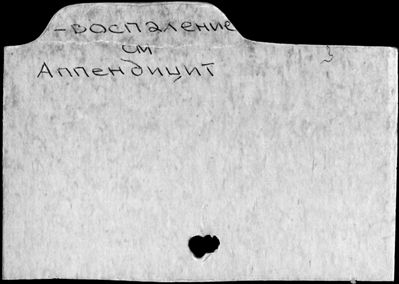 -воспаление
см
3
Аппендицит